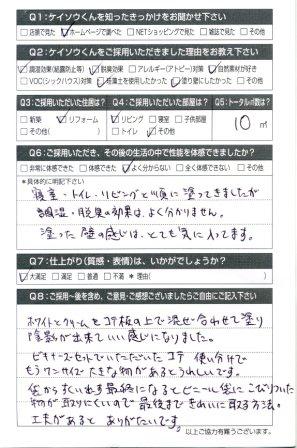 Q1：ケイソウくんを知ったきっかけをお聞かせ下さい
□店頭で見た ☑ホームページで調べた □NETショッピングで見た □雑誌で見た □その他
Q2：ケイソウくんをご採用いただきました理由をお教え下さい
☑調湿効果(結露防止等) ☑脱臭効果 □アレルギー(アトピー)対策 ☑自然素材が好き
□VOC(シックハウス)対策 ☑珪藻土を使用したかった ☑塗り壁にしたかった □その他
Q3：ご採用いただいた住居は？ Q4：ご採用いただいた部屋は？ Q5：トータル㎡数は？
□新築 ☑リフォーム ☑リビング □寝室 □子供部屋
□その他( ) ☑トイレ ☑その他
10 ㎡
Q6：ご採用いただき、その後の生活の中で性能を体感できましたか？
□非常に体感できた □体感できた ☑よく分からない □全く体感できない □その他
＊具体的に明記下さい
寝室・トイレ・リビングと順に塗ってきましたが
調湿・脱臭の効果は、よく分かりません。
塗った壁の感じは、とても気に入ってます。
Q7：仕上がり(質感・表情)は、いかがでしょうか？
☑大満足 □満足 □普通 □不満 ＊理由( )
Q8：ご採用～後を含め、ご意見・ご感想ございましたらご自由にご記入下さい
ホワイトとクリームをコテ板の上で混ぜ合わせて塗り
陰影が出来ていい感じになりました。
ビギナーズセットでいただいたコテ 使い分けで
もうワンサイズ大きな物があるとうれしいです。
袋からすくい出す最終になるとビニール袋にこびりついた
物が取りにくいので最後まできれいに取る方法。
工夫があると ありがたいです。
以上ご協力有難うございます。